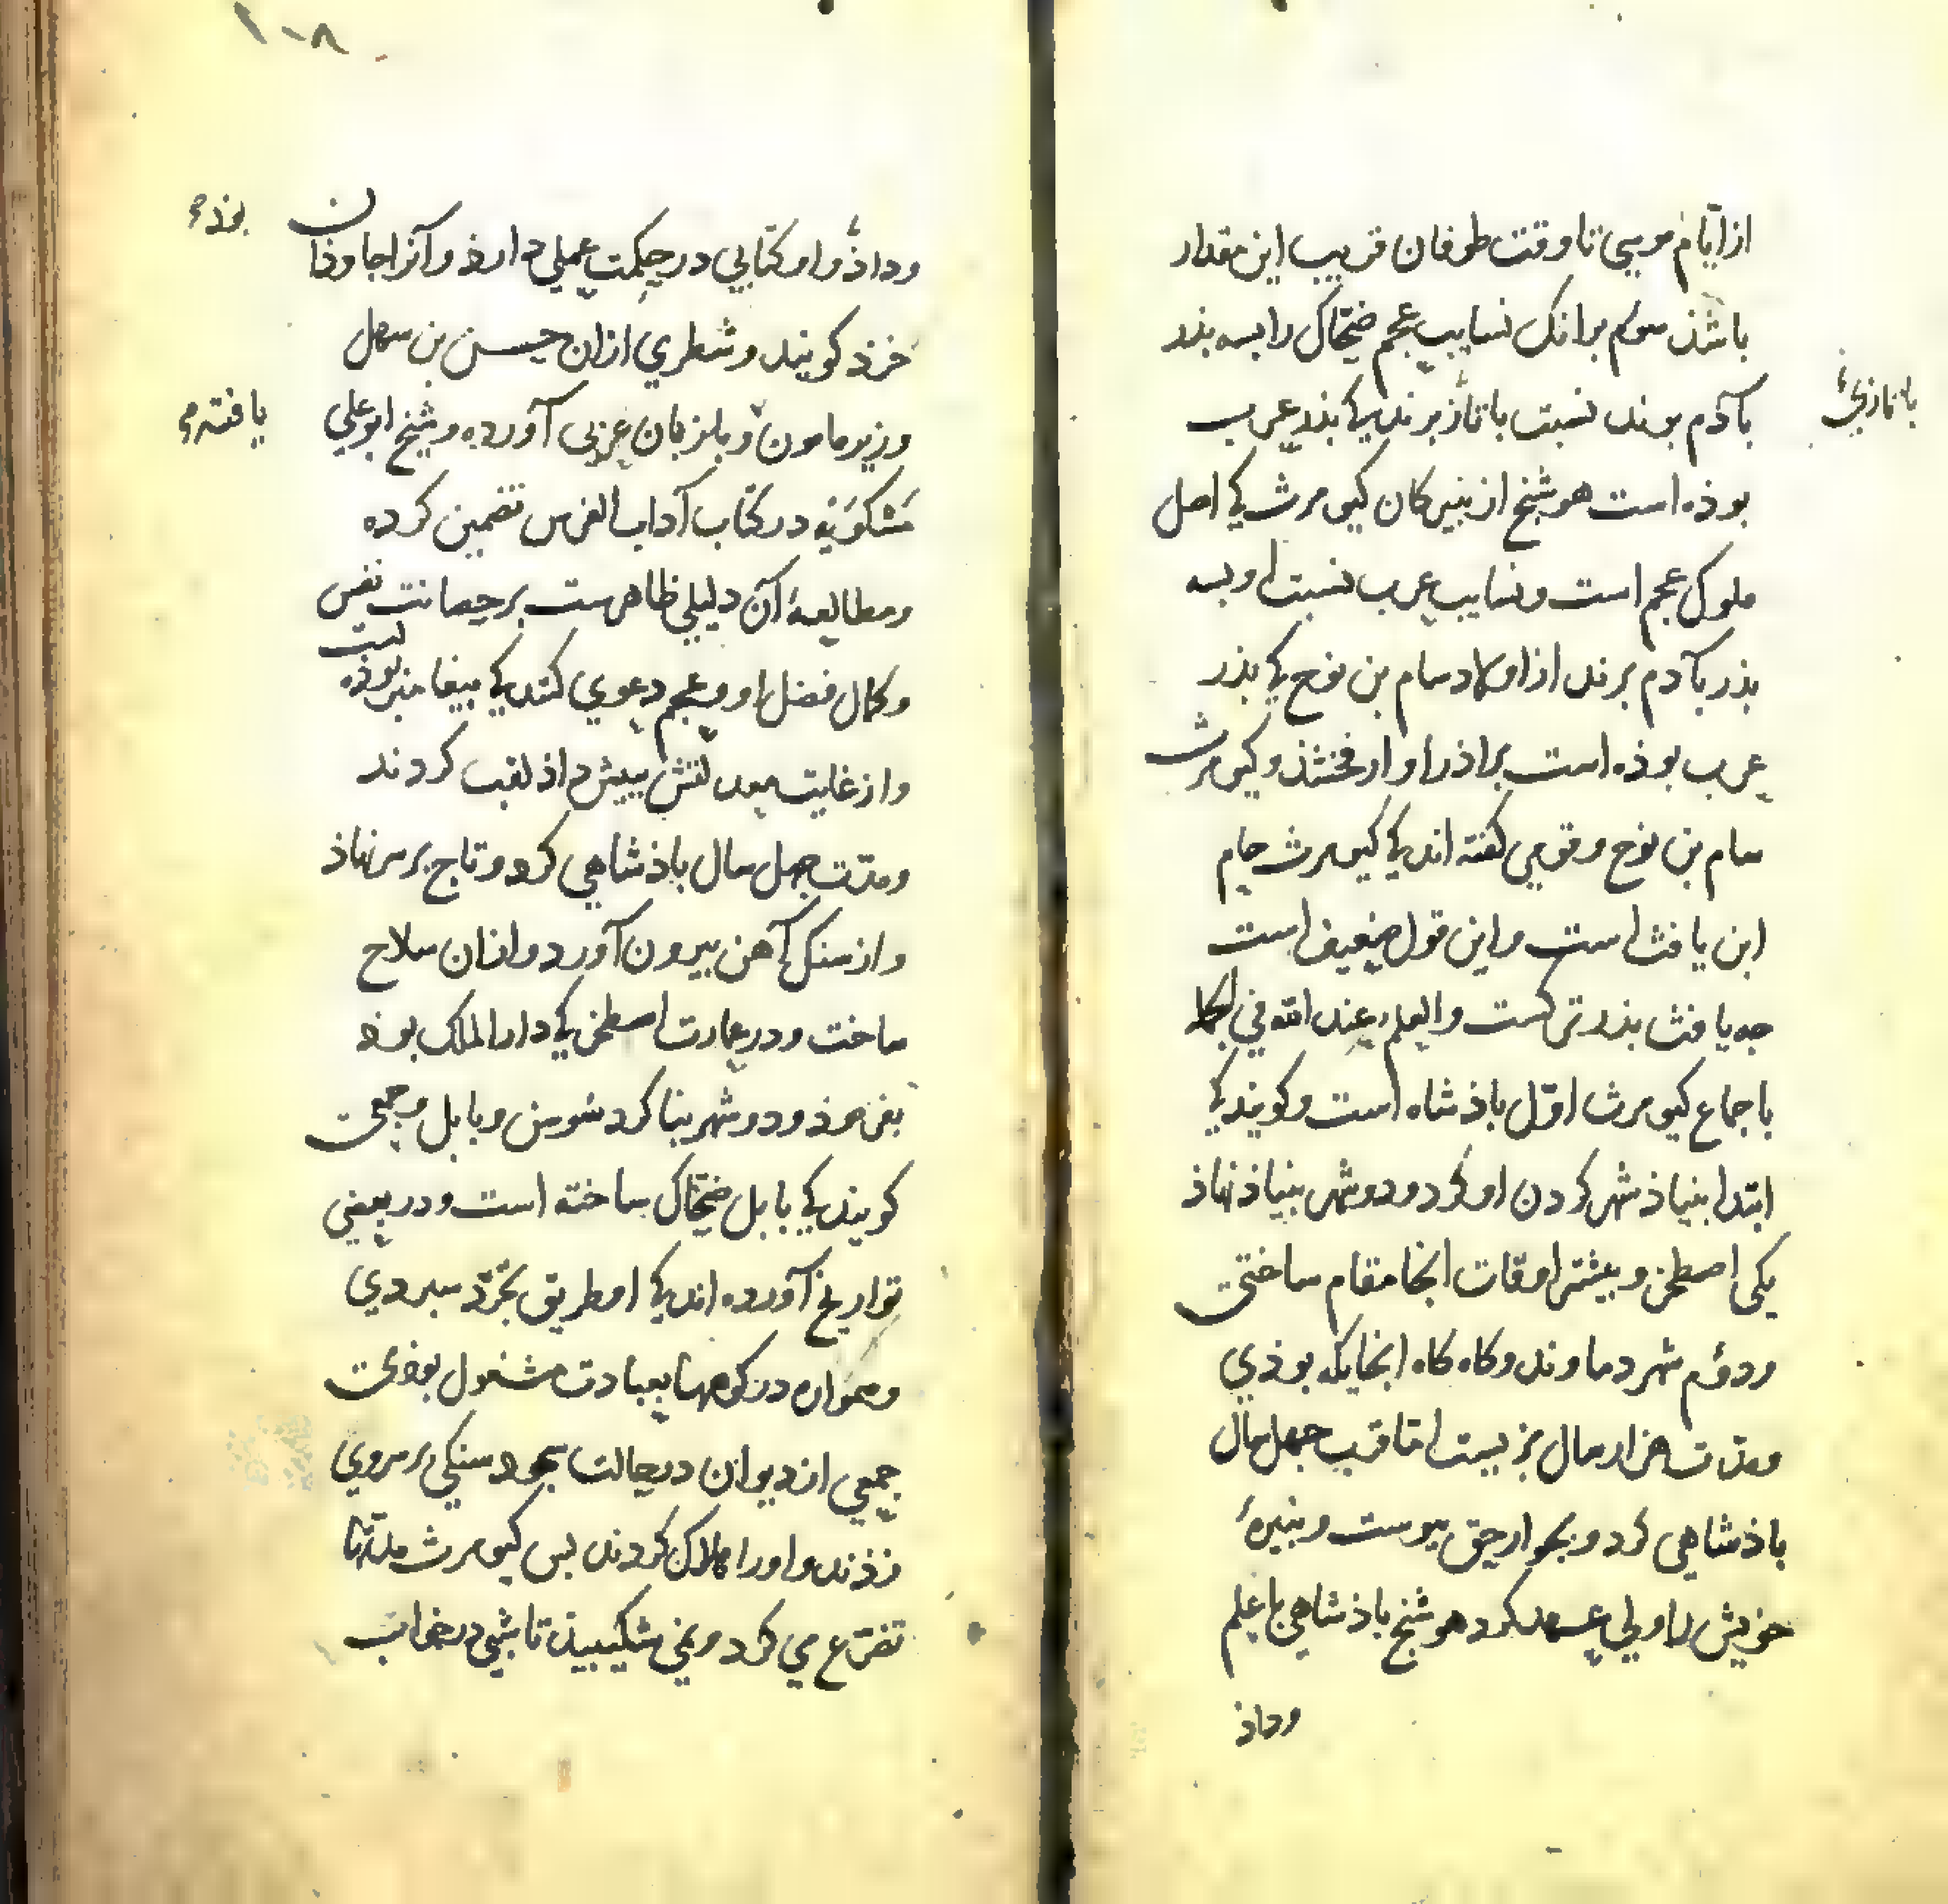 از ایّام موسی تا وقت طوفان قریب این مقدار
باشذ سوم برانک نسابیب عجم ضحّاک را بسه بذر
بآدم بوند نسبت باتماز برند کی بذر عرب
باتمازیء
بوذه است هوشنج از نبیرکان کیومرث کی اصل
ملوک عجم است و نسابیب عرب نسبت او بسه
بذر بآدم برند از اولاد سام بن نوح کی بذر
عرب بوذه است براذر او ارفخشذ و کیومرث
سام بن نوح و قومی کفته اند کی کیومرث حام
ابن یافث است و این قول ضعیف است
جه یافث بذر ترکست والعلم عند الله فی الجمله
باجماع کیومرث اوّل باذشاه است و کویند کی
ابتدا بنیاذ شهر کردن او کرد و دو شهر بنیاذ نهاذ
یکی اصطخر و بیشتر اوقات انجا مقام ساختی
و دوّم شهر دماوند و کاه کاه انجایکه بوذی
و مدّت هزار سال بزیست امّا قریب جهل سال
باذشاهی کرد و بجوار حق بیوست و نبیرهٔ
خویش را ولی عهد کرد هوشنج باذشاهی با علم
وداذ
۱۰۸
وداذ و او کتابی در حکمت عملی دارذ و آنرا جاوذان
بوذه
خرذ کویند و شطری ازان حسن بن سهل
وزیر مامون و با زبان عربی آورده و شیخ ابو علی
یافته
مشکویه در کتاب آداب الفرس تضمین کرده
و مطالعهٔ آن دلیلی ظاهرست بر حصانت نفس
و کمال فضل او و عجم دعوی کنند کی بیغامبر بوذه است
و از غایت عدلتش بیشداذ لقب کردند
و مدّت جهل سال باذشاهی کرد و تاج بر سر نهاذ
و از سنک آهن بیرون آورد و ازان سلاح
ساخت و در عمارت اصطخر کی دار الملک بوذ
بفزوذ و دو شهر بنا کرد سوس و بابل و جمعی
کویند کی بابل ضحّاک ساخته است و در بعضی
تواریخ آورده اند کی او طریق تجرّد سبردی
و همواره در کوهها بعبادت مشغول بوذی
جمعی از دیوان در حالت سجود سنکی بر سروی
زذند و اورا هلاک کردند بس کیومرث مدّتها
تضرّع می کرد و نمی شکیبیذ تا شبی در خواب